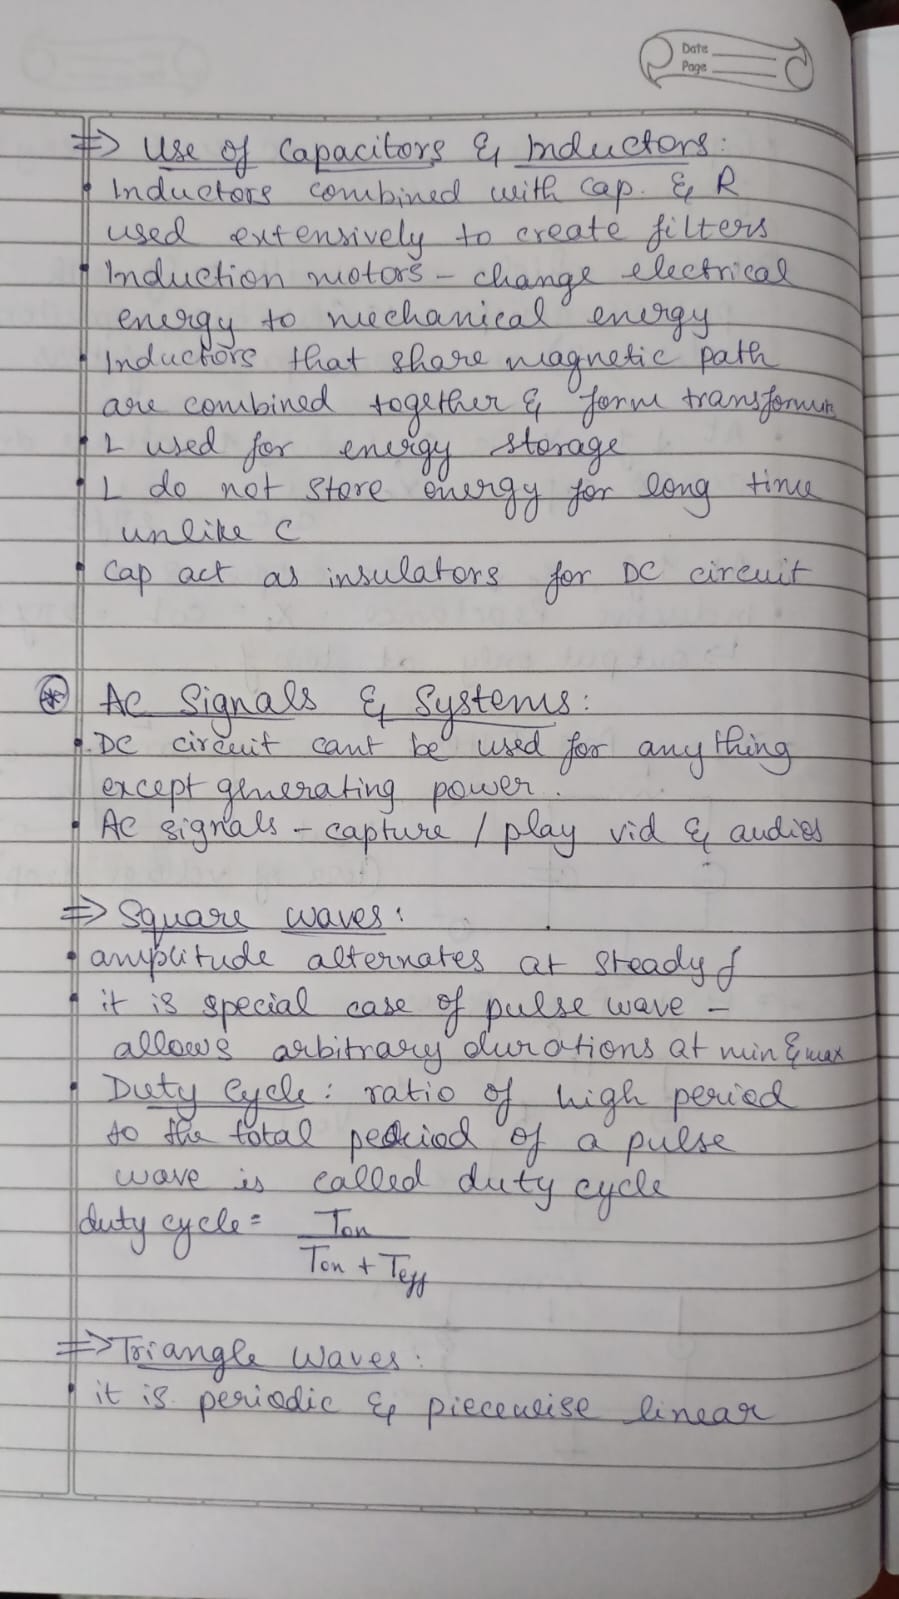 Date
Page
=> Use of Capacitors & Inductors:
• Inductors combined with cap. & R
used extensively to create filters
• Induction motors - change electrical
energy to mechanical energy
• Inductors that share magnetic path
are combined together & form transformer
• L used for energy storage
• L do not store energy for long time
unlike C
• Cap act as insulators for DC circuit
* AC Signals & Systems:
• DC circuit cant be used for anything
except generating power.
• AC signals - capture / play vid & audios
=> Square waves:
• amplitude alternates at steady f
• it is special case of pulse wave -
allows arbitrary durations at min & max
• Duty Cycle: ratio of high period
to the total period of a pulse
wave is called duty cycle
duty cycle = Ton
Ton + Toff
=> Triangle Waves:
• it is periodic & piecewise linear